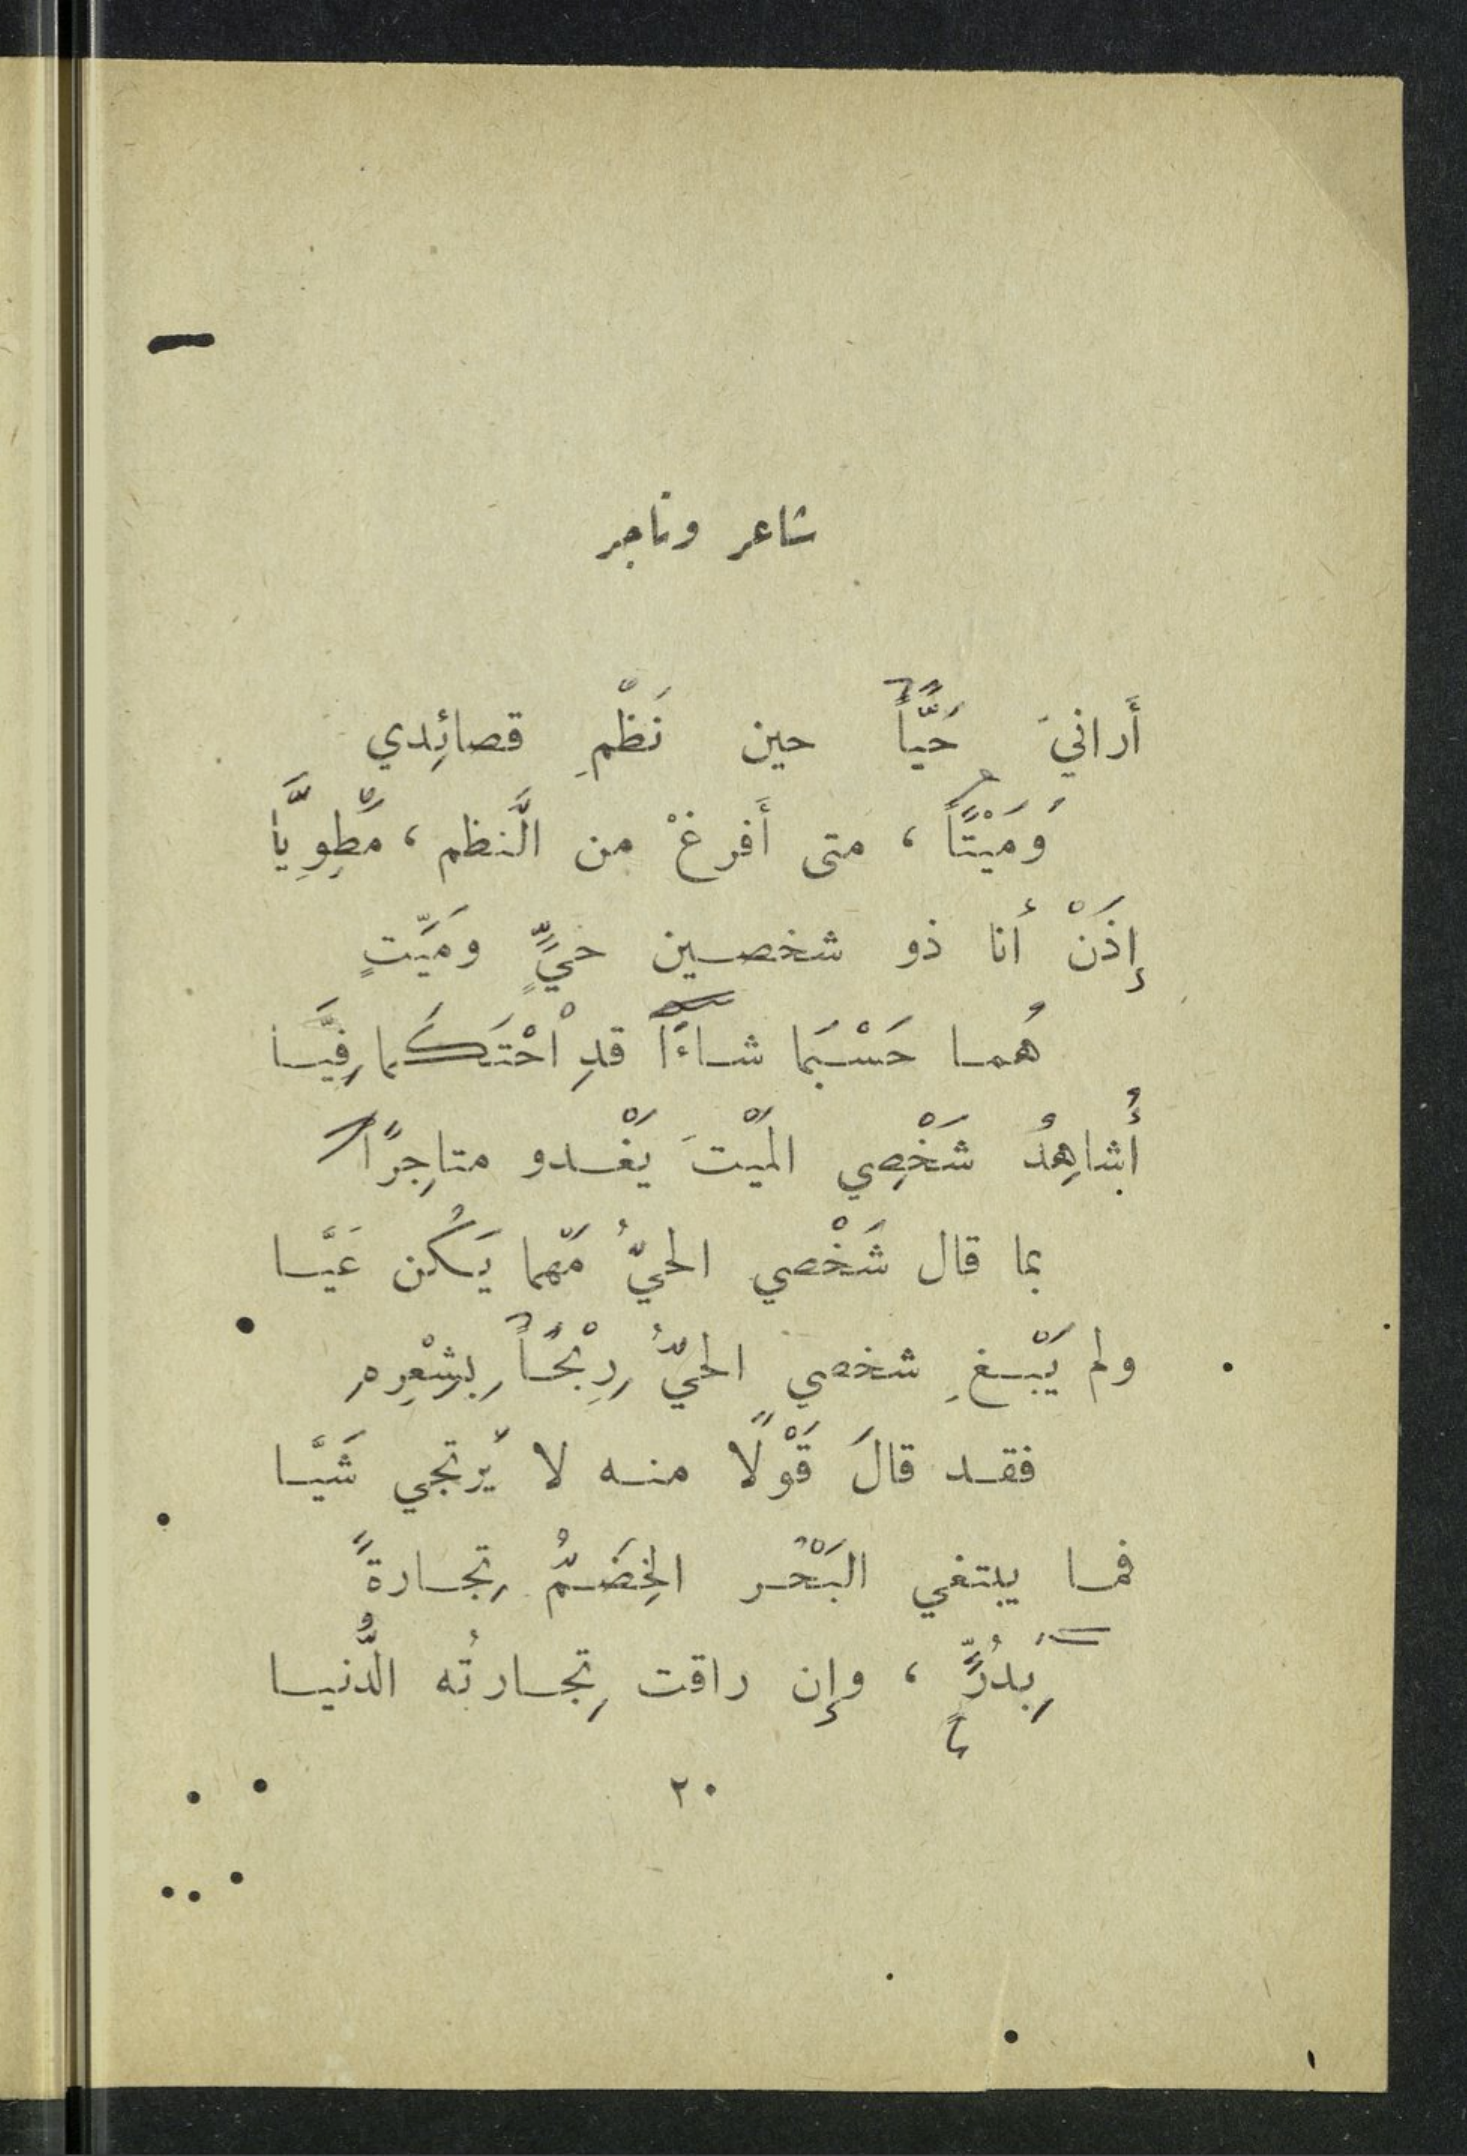 شاعر وتاجر
أَرانيَ حَيًّا حين نَظْمِ قصائِدي
وَمَيْتًا ، متى أَفرغْ من النَّظم ، مَطوِيَّا
إِذَنْ أنا ذو شخصين حيٍّ ومَيِّتٍ
هُما حَسْبَما شاءَا قدِ احْتَكَما فِيَّا
أُشاهِدُ شَخْصِي المَيْتَ يَغْدو متاجِرًا
بما قال شَخْصي الحيُّ مَهما يَكُن عَيَّا
ولم يَبْغِ شخصي الحيُّ رِبْحًا بِشِعْرِهِ
فقد قالَ قَوْلًا منه لا يَرتجي شَيَّا
فما يبتغي البَحْر الخِضَمُّ تِجارةً
بِدُرٍّ ، وإن راقت تِجارتُه الدُّنيا
٢٠